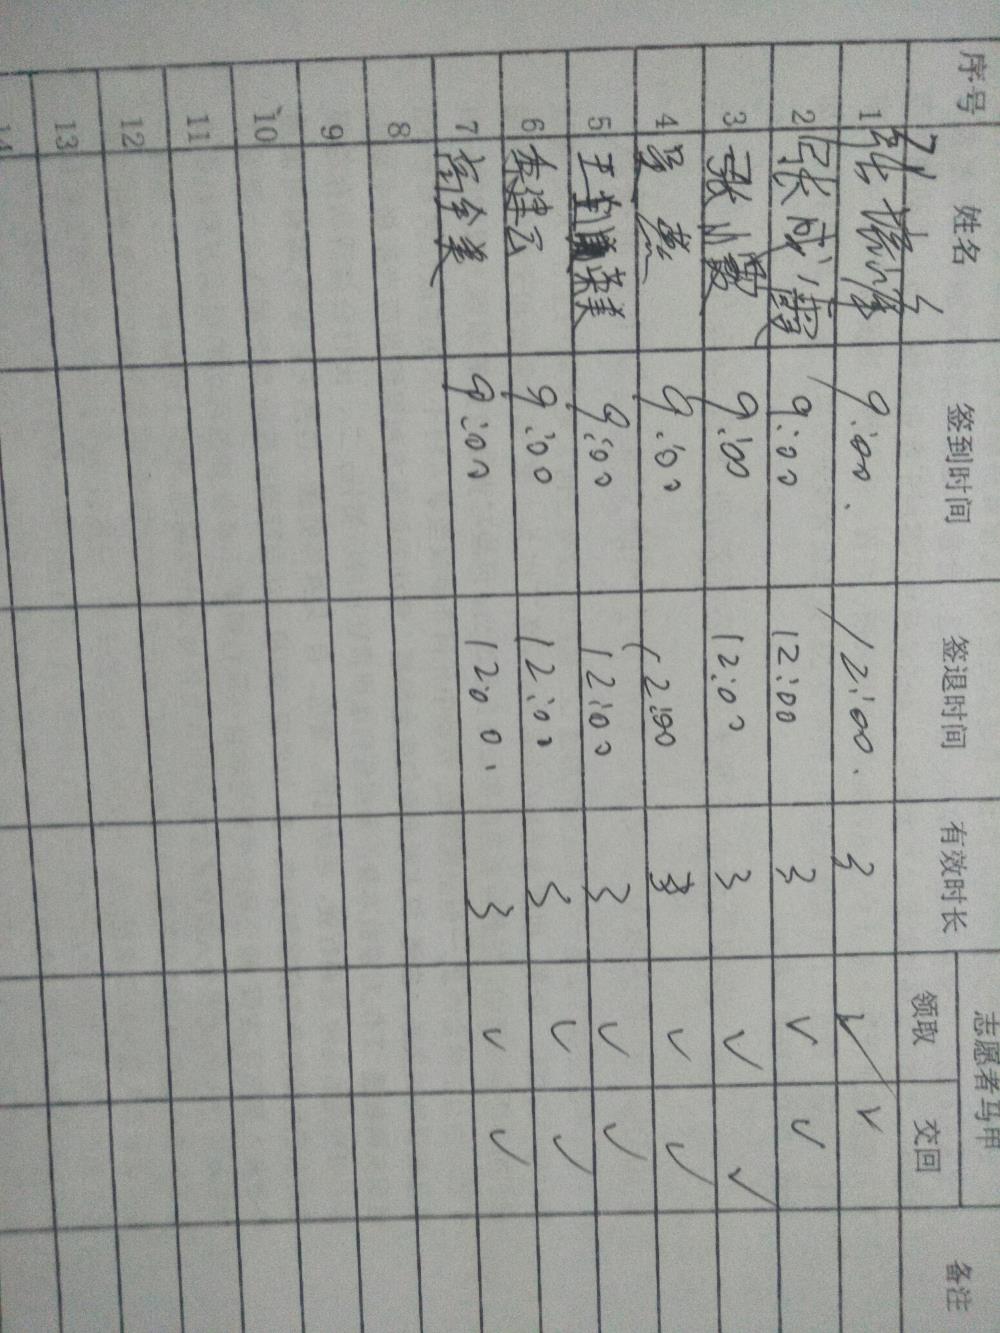 序号 姓名 签到时间 签退时间 有效时长 志愿者马甲 备注
领取 交回
1 张 9:00. 12:00. 3 ✓ ✓
2 张成霞 9:00 12:00 3 ✓ ✓
3 张小霞 9:00 12:00 3 ✓ ✓
4 吴燕 9:00 12:00 3 ✓ ✓
5 王 荣美 9:00 12:00 3 ✓ ✓
6 李建云 9:00 12:00 3 ✓ ✓
7 高金美 9:00 12:00. 3 ✓ ✓
8
9
10
11
12
13
14